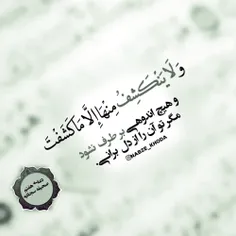 وَلَا يَنْكَشِفُ مِنْهَا إِلَّا مَا كَشَفْتَ
و هیچ اندوهی بر طرف نشود
مگر تو آن را از دل برانی.
@HARIE_KHODA